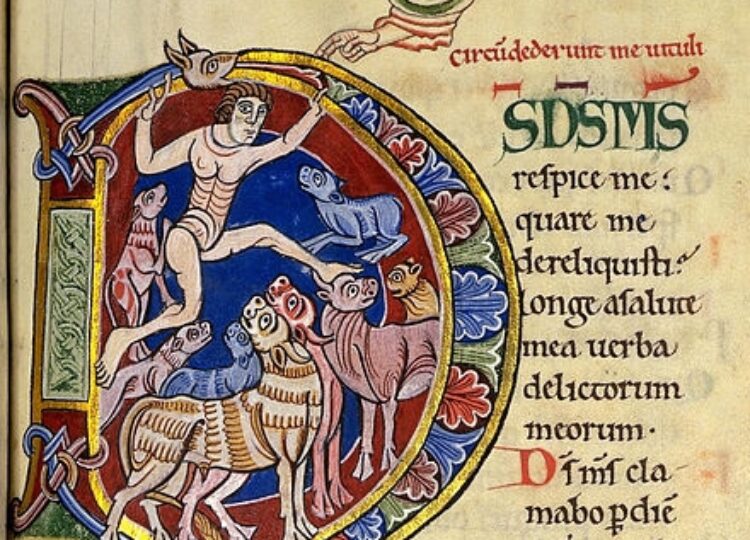 circūdederunt me uituli
DS DS M̄S
respice me:
quare me
dereliquisti.
longe a salute
mea uerba
delictorum
meorum·
Ds ms̄ cla-
mabo p diē